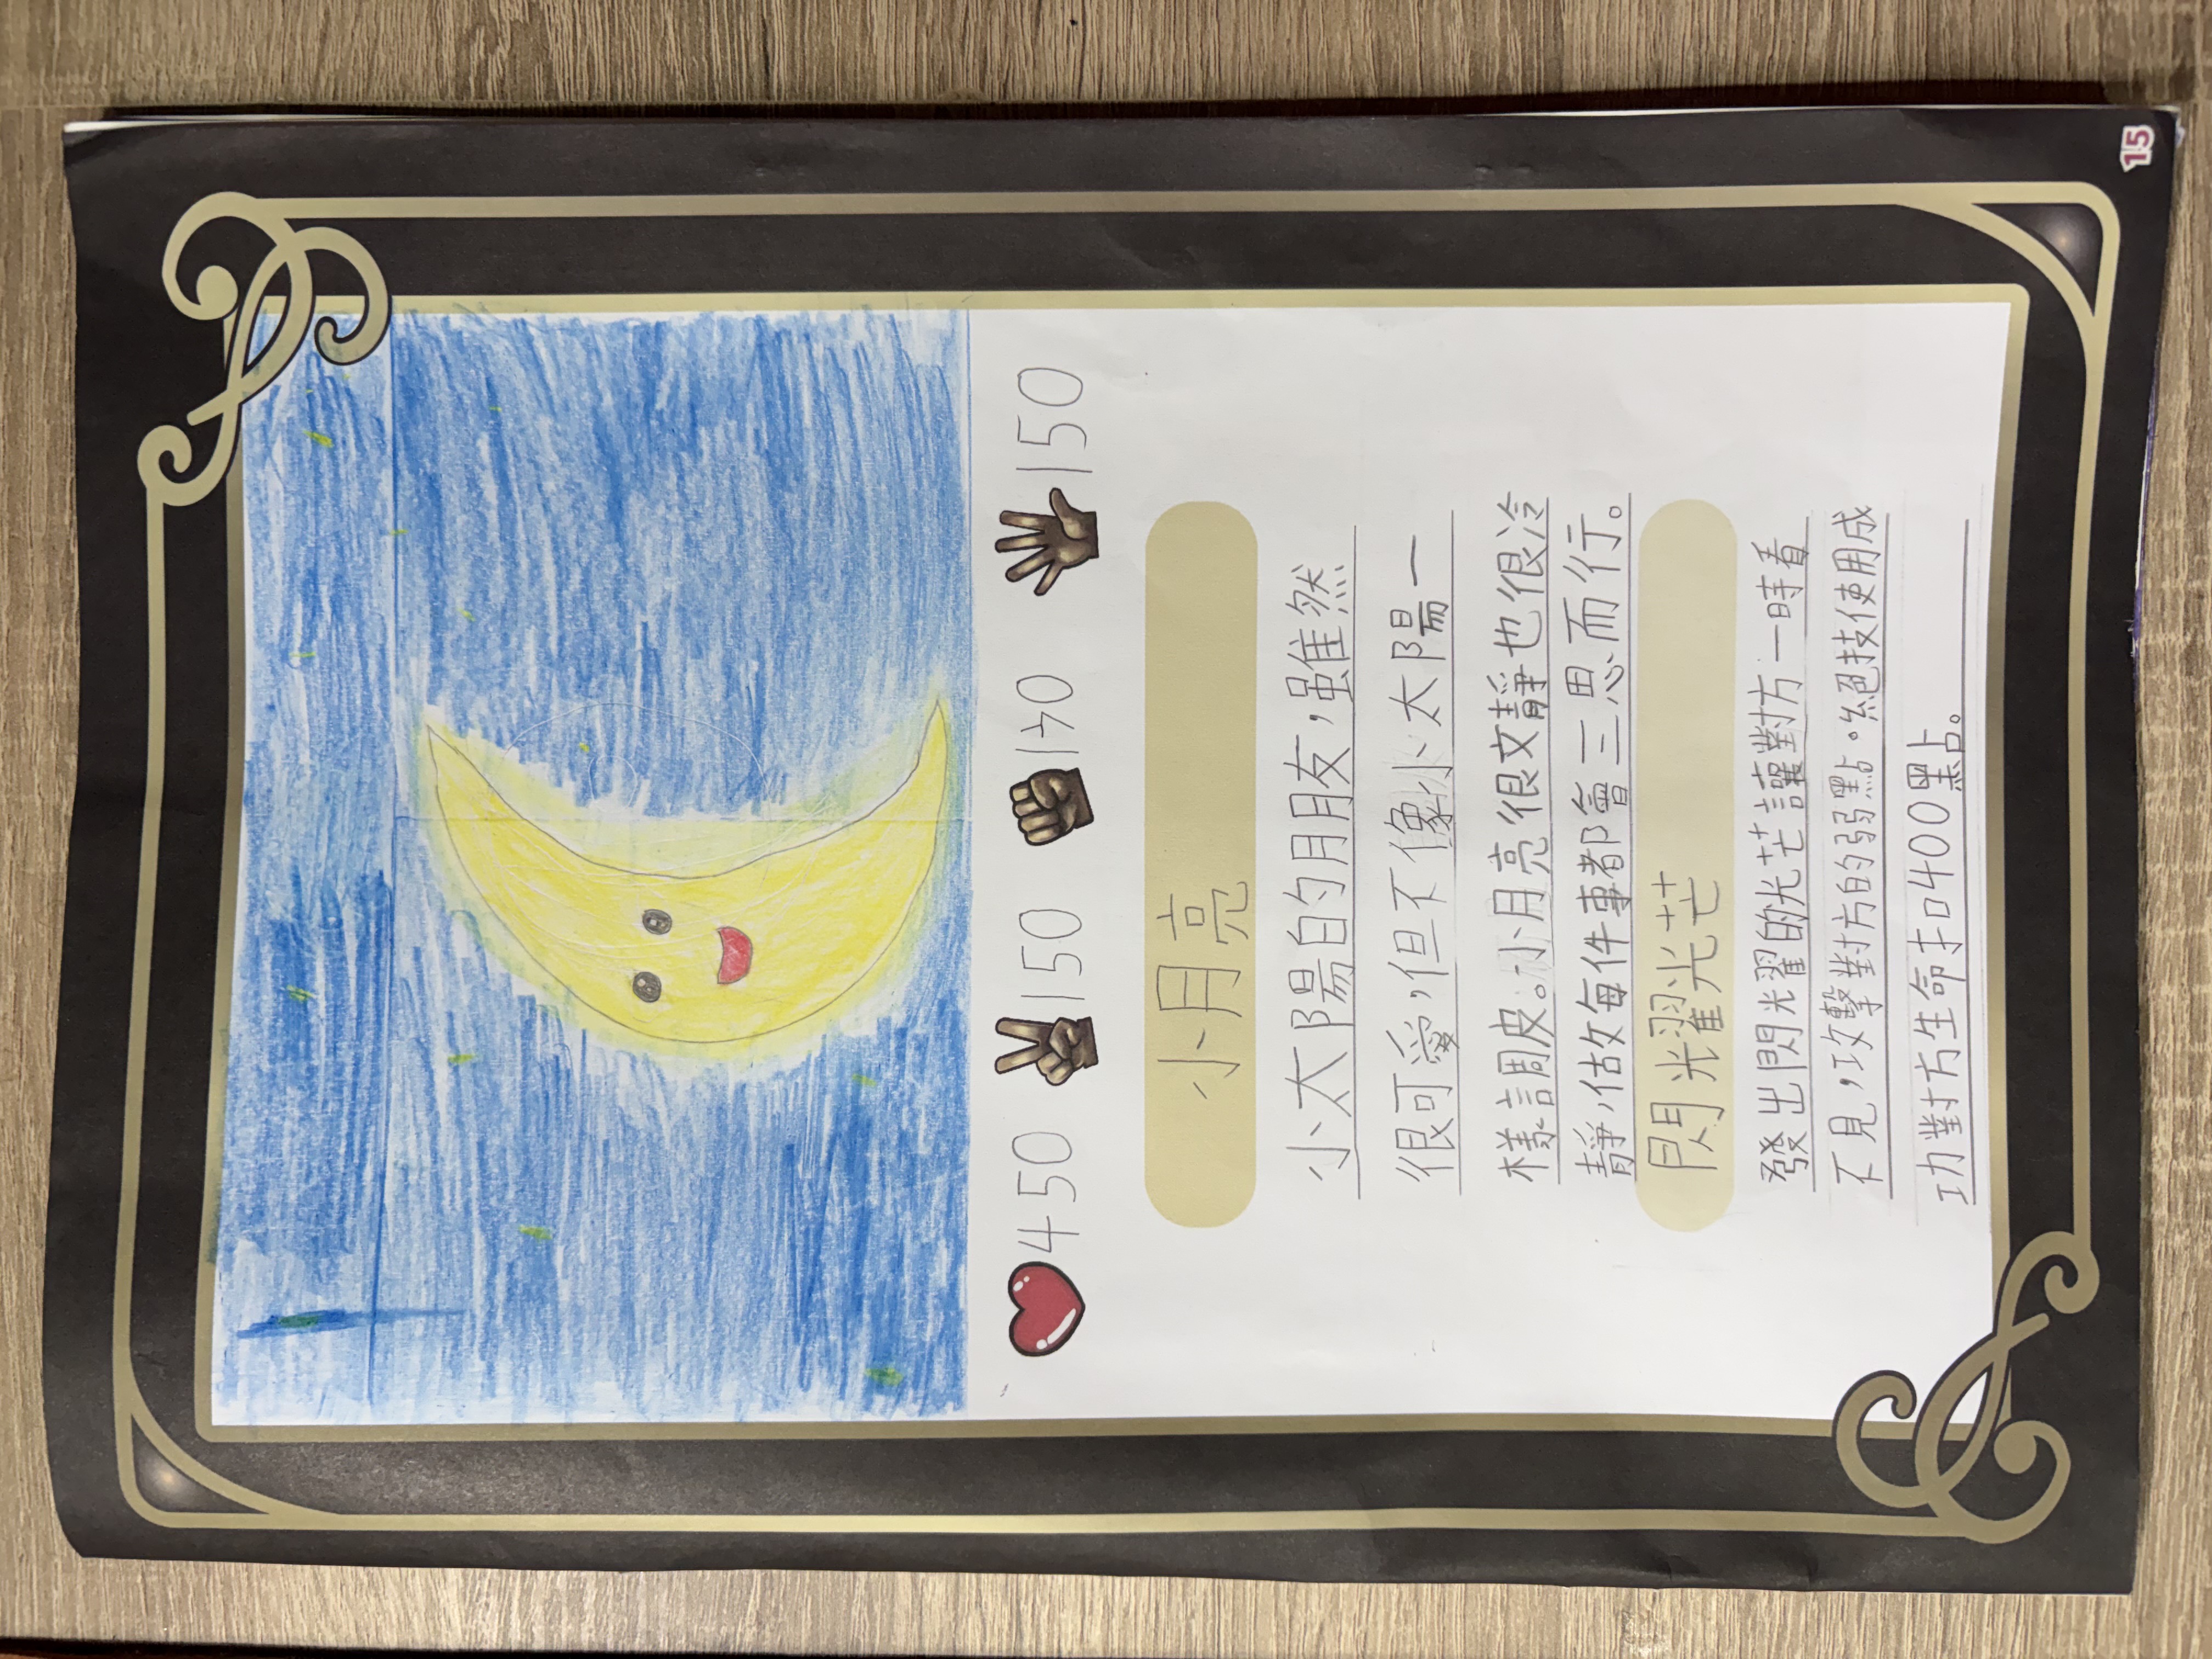 450 150 140 150
小月亮
小太陽的月月友,雖然
很可愛,但不像小太陽一
樣調皮。小月亮很文靜也很冷
靜,做每件事都會三思而行。
閃光耀光芒
發出閃光耀的光芒讓對方一時看
不見,攻擊對方的弱點。絕技使用成
功對方生命扣400點。
15